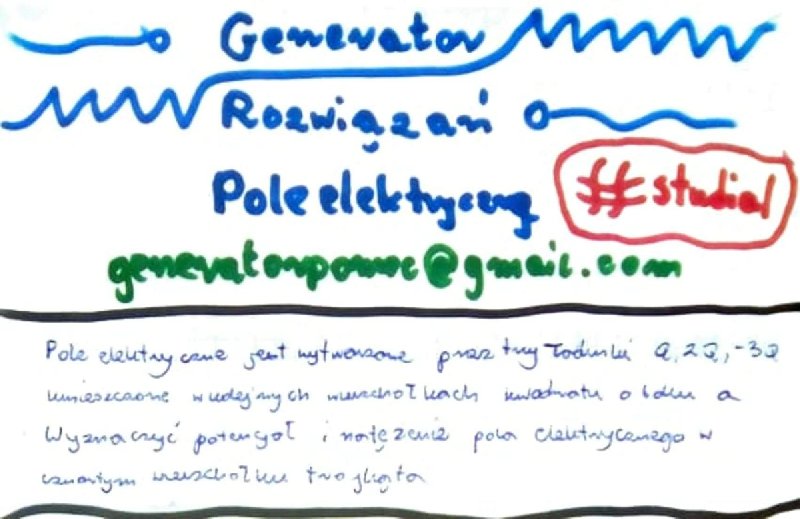 Generator
Rozwiązań
Pole elektryczne #studial
generatorpomoc@gmail.com
Pole elektryczne jest wytworzone przez trzy ładunki Q, 2Q, -3Q
umieszczone w kolejnych wierzchołkach kwadratu o boku a
Wyznaczyć potencjał i natężenie pola elektrycznego w
czwartym wierzchołku trójkąta